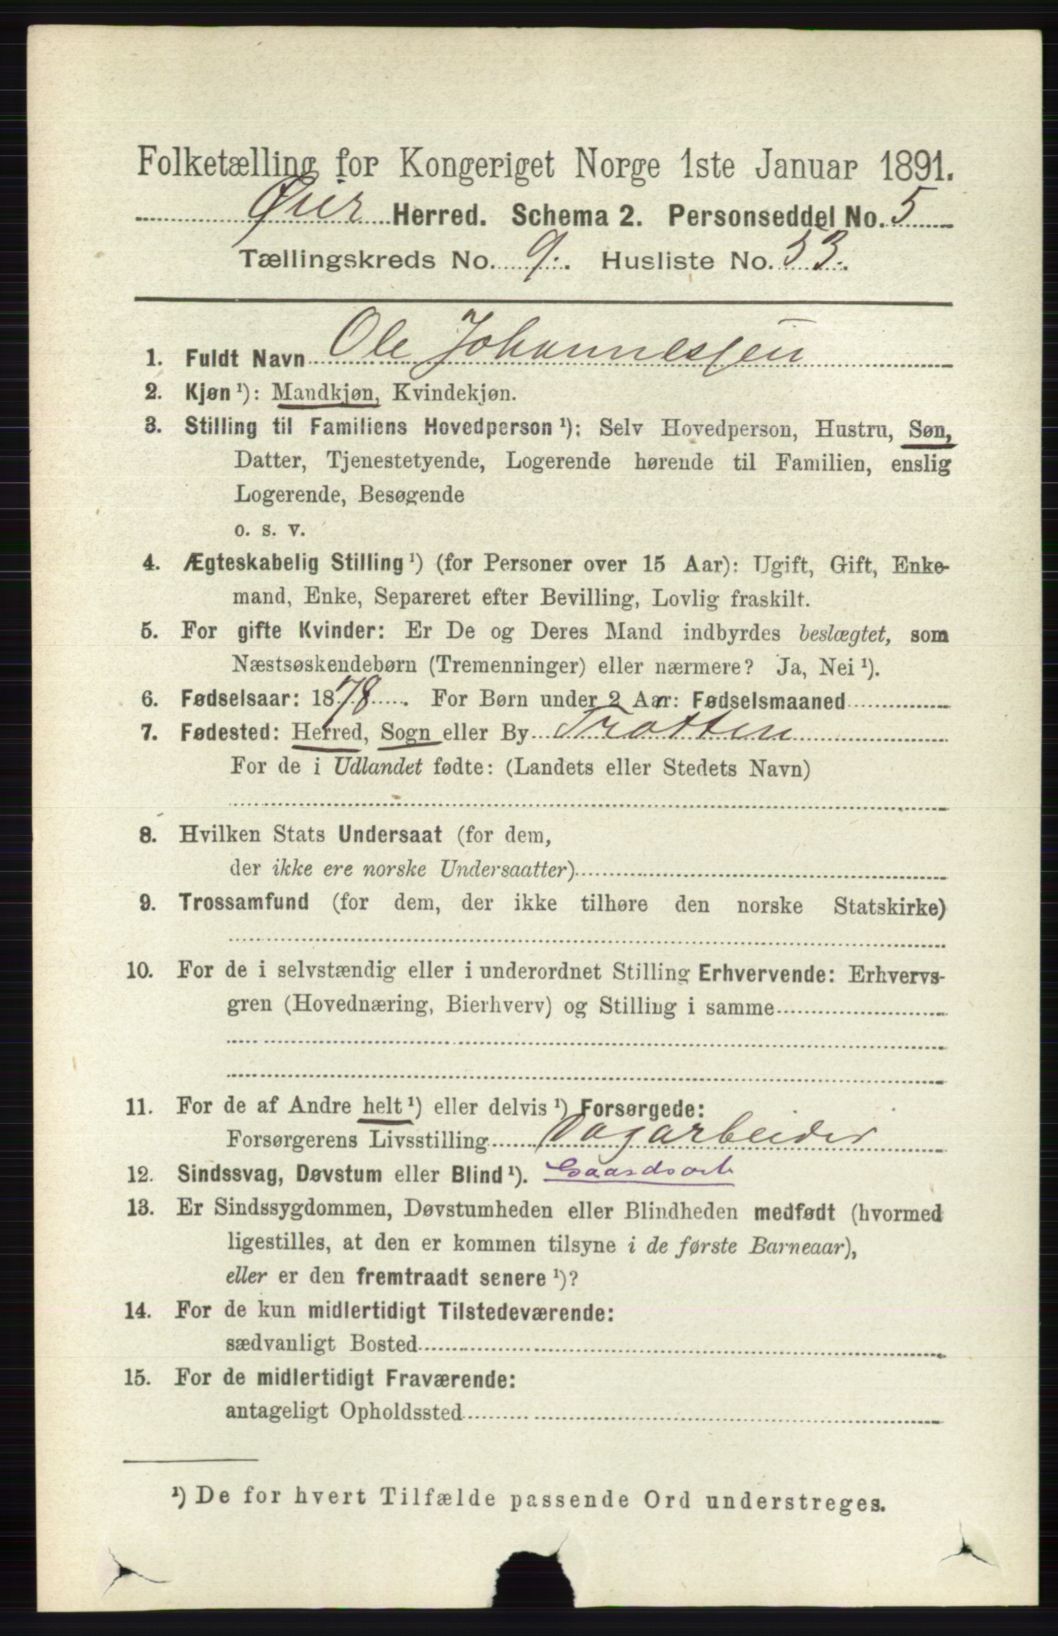 Folketælling for Kongeriget Norge 1ste Januar 1891.
Øier Herred. Schema 2. Personseddel No. 5
Tællingskreds No. 9. Husliste No. 53.
1. Fuldt Navn Ole Johannessen
2. Kjøn ¹): Mandkjøn, Kvindekjøn.
3. Stilling til Familiens Hovedperson ¹): Selv Hovedperson, Hustru, Søn,
Datter, Tjenestetyende, Logerende hørende til Familien, enslig
Logerende, Besøgende
o. s. v.
4. Ægteskabelig Stilling ¹) (for Personer over 15 Aar): Ugift, Gift, Enke-
mand, Enke, Separeret efter Bevilling, Lovlig fraskilt.
5. For gifte Kvinder: Er De og Deres Mand indbyrdes beslægtet, som
Næstsøskendebørn (Tremenninger) eller nærmere? Ja, Nei ¹).
6. Fødselsaar: 1878. For Børn under 2 Aar: Fødselsmaaned
7. Fødested: Herred, Sogn eller By Tratten
For de i Udlandet fødte: (Landets eller Stedets Navn)
8. Hvilken Stats Undersaat (for dem,
der ikke ere norske Undersaatter)
9. Trossamfund (for dem, der ikke tilhøre den norske Statskirke)
10. For de i selvstændig eller i underordnet Stilling Erhvervende: Erhvervs-
gren (Hovednæring, Bierhverv) og Stilling i samme
11. For de af Andre helt ¹) eller delvis ¹) Forsørgede:
Forsørgerens Livsstilling Dagarbeider
12. Sindssvag, Døvstum eller Blind ¹). Gaardsarb
13. Er Sindssygdommen, Døvstumheden eller Blindheden medfødt (hvormed
ligestilles, at den er kommen tilsyne i de første Barneaar),
eller er den fremtraadt senere ¹)?
14. For de kun midlertidigt Tilstedeværende:
sædvanligt Bosted
15. For de midlertidigt Fraværende:
antageligt Opholdssted
¹) De for hvert Tilfælde passende Ord understreges.